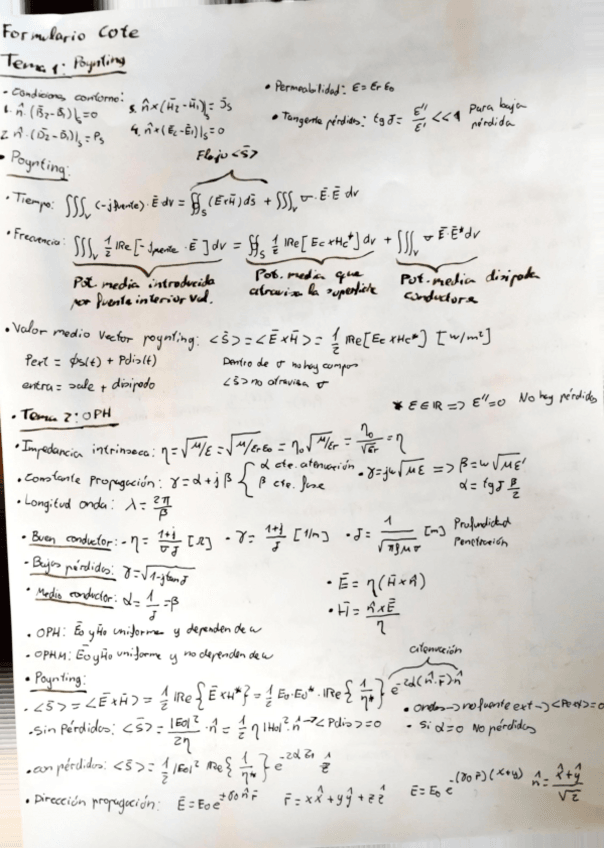 Formulario Cote
Tema 1: Poynting
• Condiciones contorno:
1. n̂·(B̄2-B̄1)|s=0
3. n̂×(H̄2-H̄1)|s=J̄s
2. n̂·(D̄2-D̄1)|s=Ps
4. n̂×(Ē2-Ē1)|s=0
• Permeabilidad: ε=εrε0
• Tangente pérdidas: tgδ= ε''/ε' <<1 Para baja pérdida
• Poynting:
Flujo <s̄>
• Tiempo: ∭v (-jfuente)·Ē dv = ∯s (Ē×H̄) ds̄ + ∭v σ·Ē·Ē dv
• Frecuencia: ∭v 1/2 Re[-jfuente·Ē*] dv = ∯s 1/2 Re[Ec×Hc*] dv + ∭v σ Ē·Ē* dv
Pot. media introducida por fuente interior vol.
Pot. media que atraviesa la superficie
Pot. media disipada conductora
• Valor medio vector poynting: <s̄>=<Ē×H̄>= 1/2 Re[Ec×Hc*] [w/m²]
Pext = ϕs(t) + Pdis(t)
Dentro de σ no hay campos
entra = sale + disipado
<s̄> no atraviesa σ
• Tema 2: OPH
* ε∈ℝ => ε''=0 No hay pérdidas
• Impedancia intrínseca: η=√μ/ε=√μ/εrε0=η0√μ/εr=η0/√εr=η
• Constante Propagación: γ=α+jβ { α cte. atenuación β cte. fase
• γ=jω√με => β=ω√με' α=tgδ β/2
• Longitud onda: λ=2π/β
• Buen conductor: - η=1+j/σδ [Ω] • γ=1+j/δ [1/m] • δ=1/√πfμσ [m] Profundidad Penetración
- Bajas pérdidas: γ=√1-jtanδ
• Medio conductor: α=1/δ=β
• Ē=η(H̄×n̂)
• H̄=n̂×Ē/η
• OPH: Ē0 y H̄0 uniforme y dependen de ω
• OPHM: Ē0 y H̄0 uniforme y no dependen de ω
• Poynting:
atenuación
• <s̄>=<Ē×H̄>=1/2 Re{Ē×H*}=1/2 E0·E0*·Re{1/η*} e^-2α(n̂·r̄) n̂
• ondas -> no fuente ext -> <Pext>=0
• Sin Pérdidas: <s̄>=|E0|²/2η·n̂=1/2 η|H0|²·n̂ -> <Pdis>=0
• Si α=0 No pérdidas
• con pérdidas: <s̄>=1/2|E0|² Re{1/η*} e^-2αz ẑ
• Dirección propagación: Ē=E0e^±γ0n̂r̄ r̄=xx̂+yŷ+zẑ Ē=E0e^-(γ0r̄)(x+y) n̂=x̂+ŷ/√2